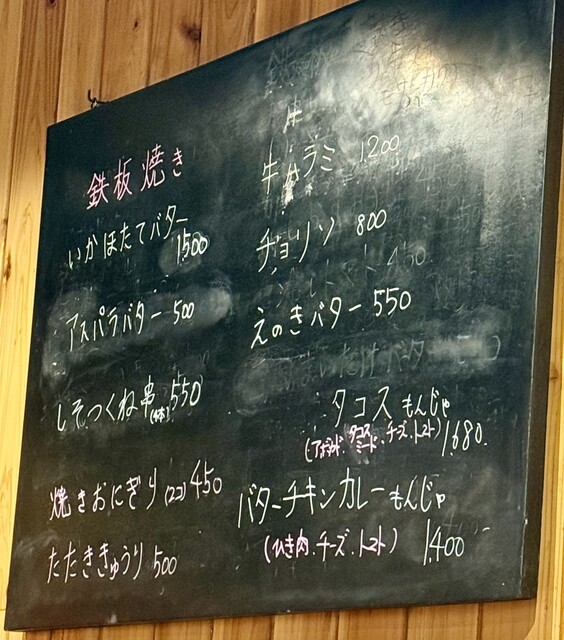 鉄板焼き
いかほたてバター
1500
アスパラバター 500
しそつくね串 550
焼きおにぎり (2コ) 450
たたききゅうり 500
牛ハラミ 1,200
チョリソ 800
えのきバター 550
タコスもんじゃ
(アボカド、タコスミート、チーズ、トマト) 1,680
バターチキンカレーもんじゃ
(ひき肉、チーズ、トマト) 1,400